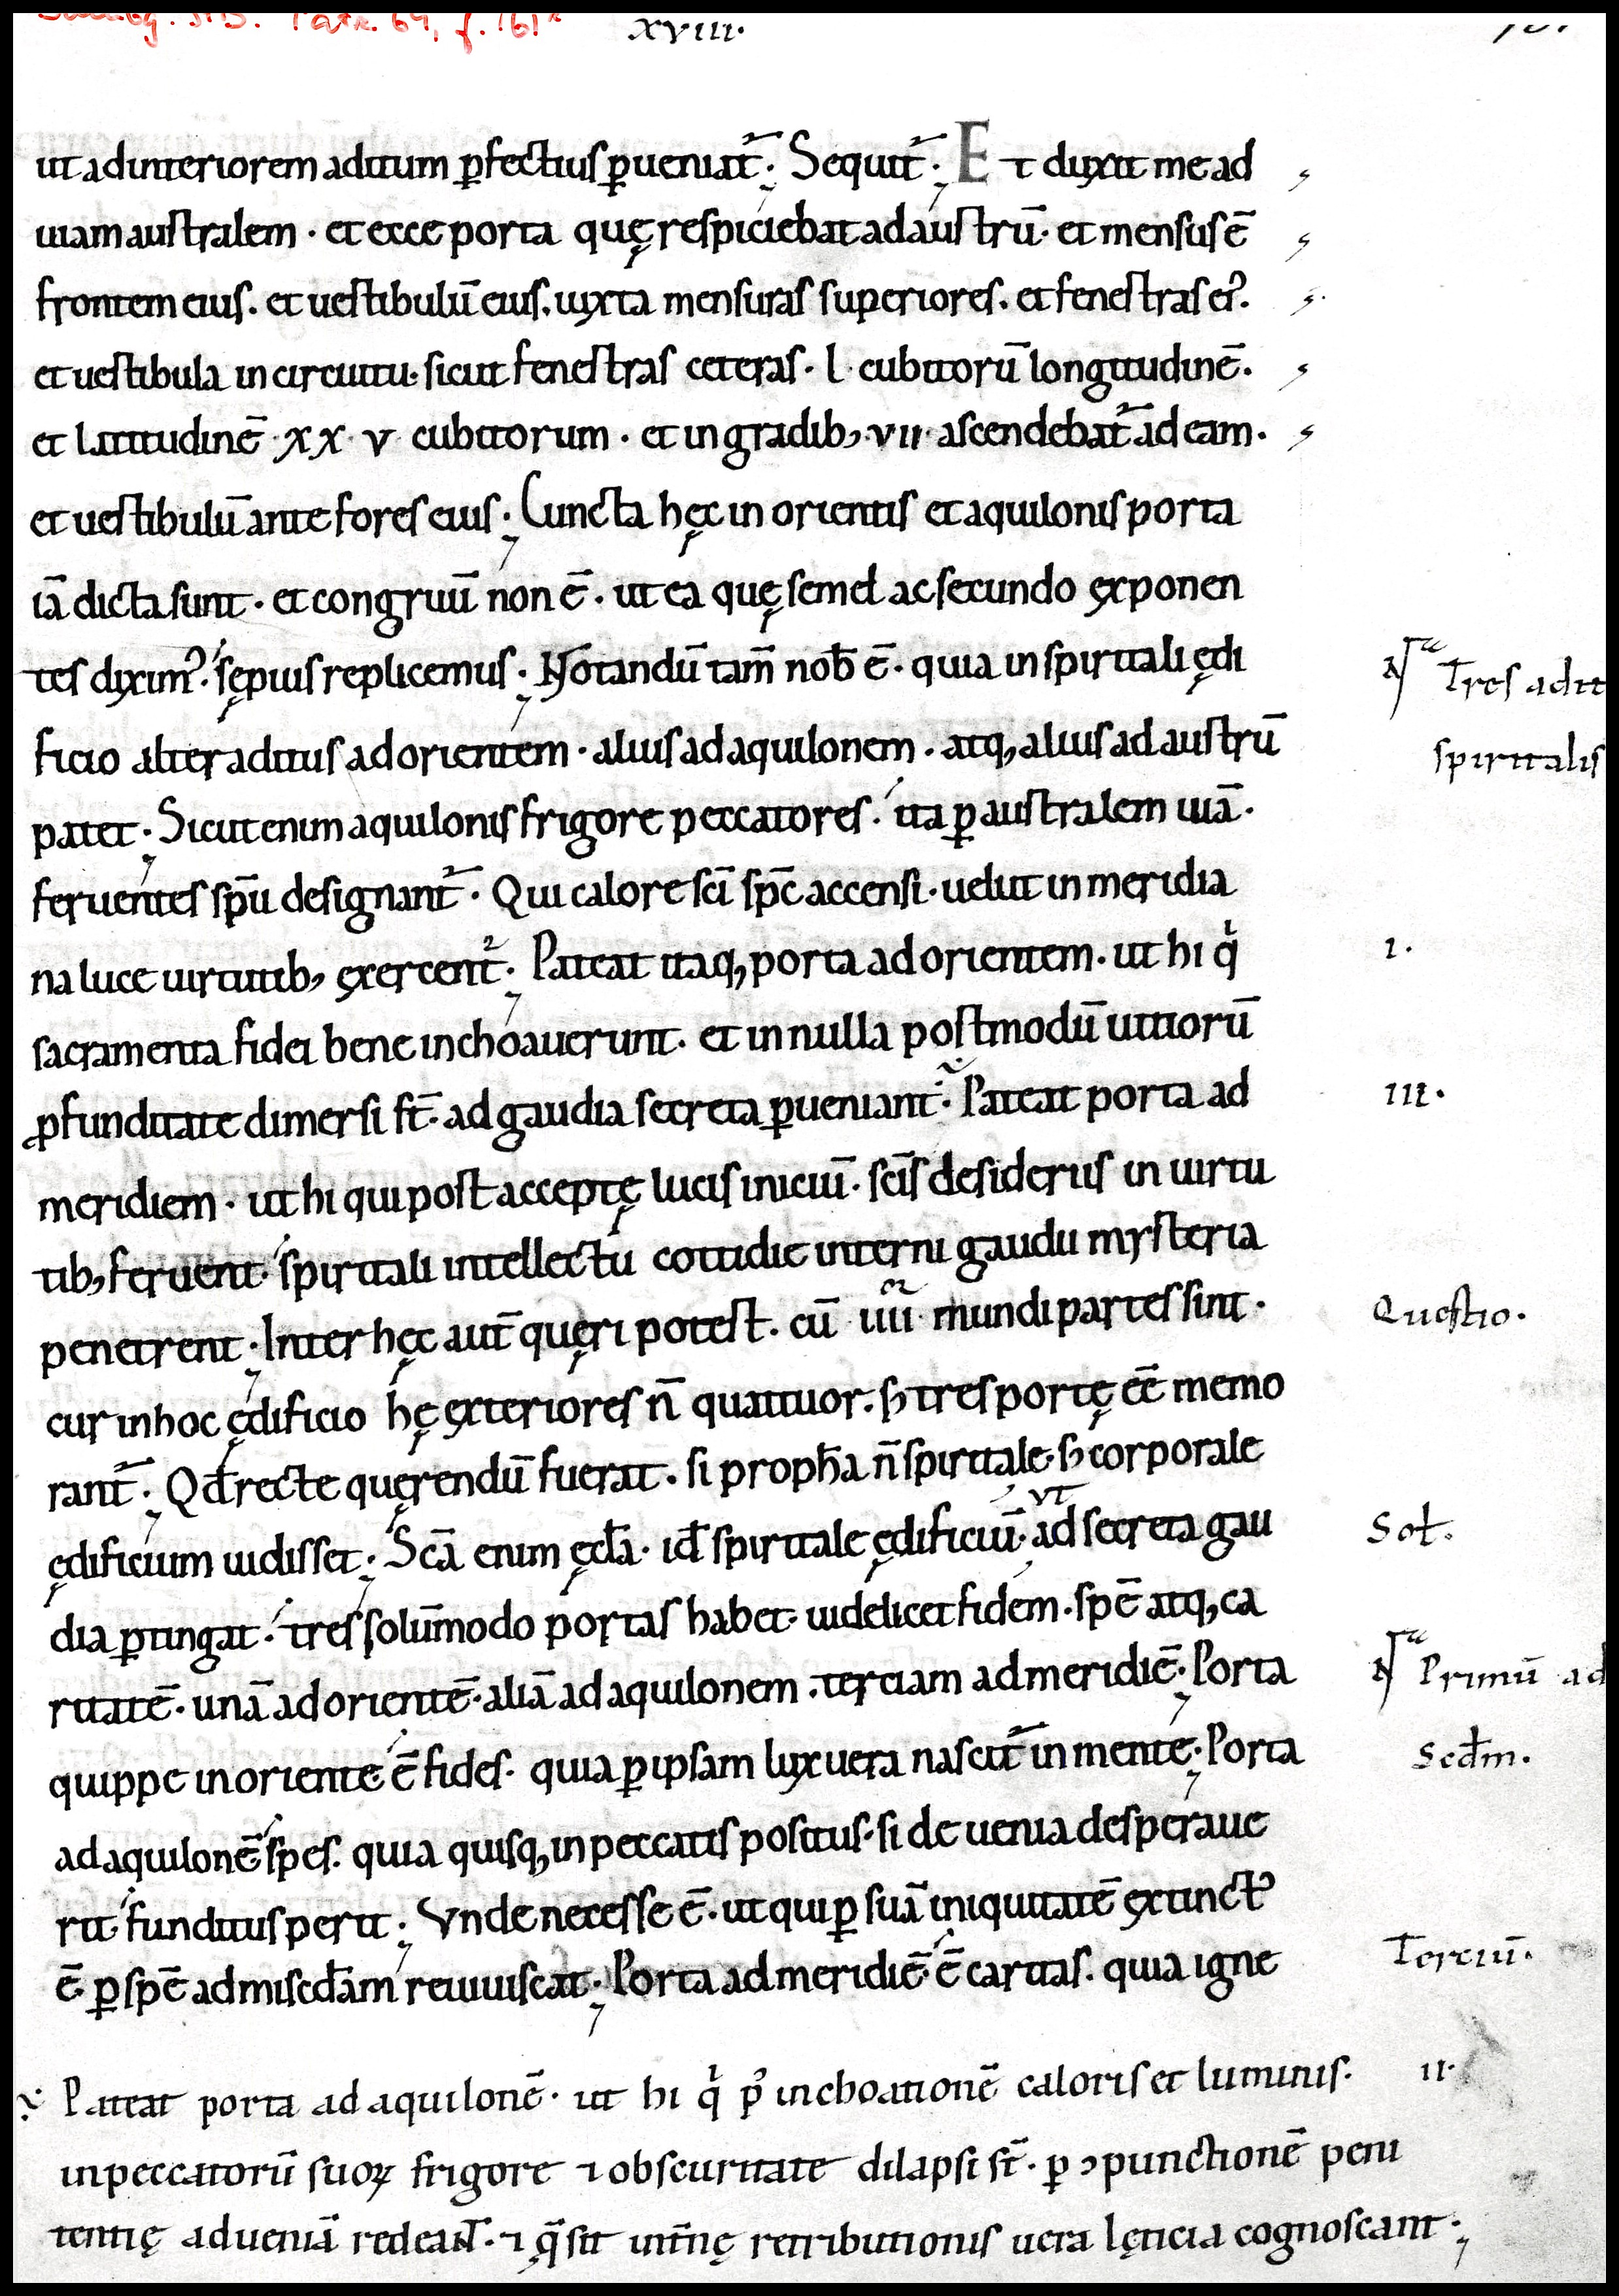 XVIII.
ut adinteriorem aditum ꝑfectius ꝑueniat᷑. Sequit᷑. Et duxit me ad
uiam australem · et ecce porta quę respiciebat ad austrū· et mensus ē
frontem eius. et uestibulū eius. iuxta mensuras superiores. et fenestras eiꝰ.
et uestibula in circuitu· sicut fenestras ceteras · l · cubitorū longitudinē.
et latitudinē · xx v cubitorum · et in gradib; · vii · ascendebat᷑ ad eam.
et uestibulū ante fores eius; Cuncta hęc in orientis et aquilonis porta
iā dicta sunt · et congruū non ē · ut ea quę semel ac secundo exponen
tes diximꝰ. sępius replicemus; Notandū tam̄ nob̄ ē · quia in spiritali ędi
Tres adit
ficio alter aditus ad orientem · alius ad aquilonem · atq; alius ad austrū
spiritalis
patet; Sicut enim aquilonis frigore peccatores. ita ꝑ australem uiā.
feruentes sp̄u designant᷑. Qui calore sc̄i sp̄c accensi · uelut in meridia
na luce uirtutib; exercent᷑; Pateat itaq; porta ad orientem. ut hi qͥ
ı.
sacramenta fidei bene inchoauerunt. et in nulla postmodū uitiorū
ꝓfunditate dimersi st̄· ad gaudia secreta ꝑueniant. Pateat porta ad
ııı.
meridiem · ut hi qui post acceptę lucis iniciū · sc̄is desideriis in uirtu
tib; feruent· spiritali intellectu cottidie interni gaudii mysteria
penetrent; Inter hęc aut̄ quęri potest. cū iiii mundi partes sint.
Questio.
cur in hoc ędificio hę exteriores n̄ quattuor. ꝵ tres portę ee̅ memo
rant᷑; Qd̄ recte quęrendū fuerat. si proph̄a n̄ spiritale· ꝵ corporale
ędificium uidisset; Sc̄a enim ęccl̄a · id̄ spiritale ędificiū · ut ad secreta gau
Sol̄.
dia ꝑtingat · tres solūmodo portas habet · uidelicet fidem · spē atq; ca
ritatē · unā ad orientē · aliā ad aquilonem · terciam ad meridiē; Porta
Primū ad
quippe in oriente ē fides · quia ꝑ ipsam lux uera nascit᷑ in mente; Porta
Scd̄m.
ad aquilonē spes. quia quisq; in peccatis positus · si de uenia desperaue
rit· funditus perit; Vnde necesse ē · ut qui ꝑ suā iniquitatē extinctꝰ
ē · ꝑ spē ad miscd̄am reuiuiscat; Porta ad meridiē ē caritas. quia igne
Terciū.
Pateat porta ad aquilonē · ut hi qͥ pꝰ inchoationē caloris et luminis.
ıı.
in peccatorū suoꝝ frigore ⁊ obscuritate dilapsi st̄ · ꝑ ↄpunctionē peni
tentię ad ueniā redeant · ⁊ q̄ sit int̄nę retributionis uera lęticia cognoscant;